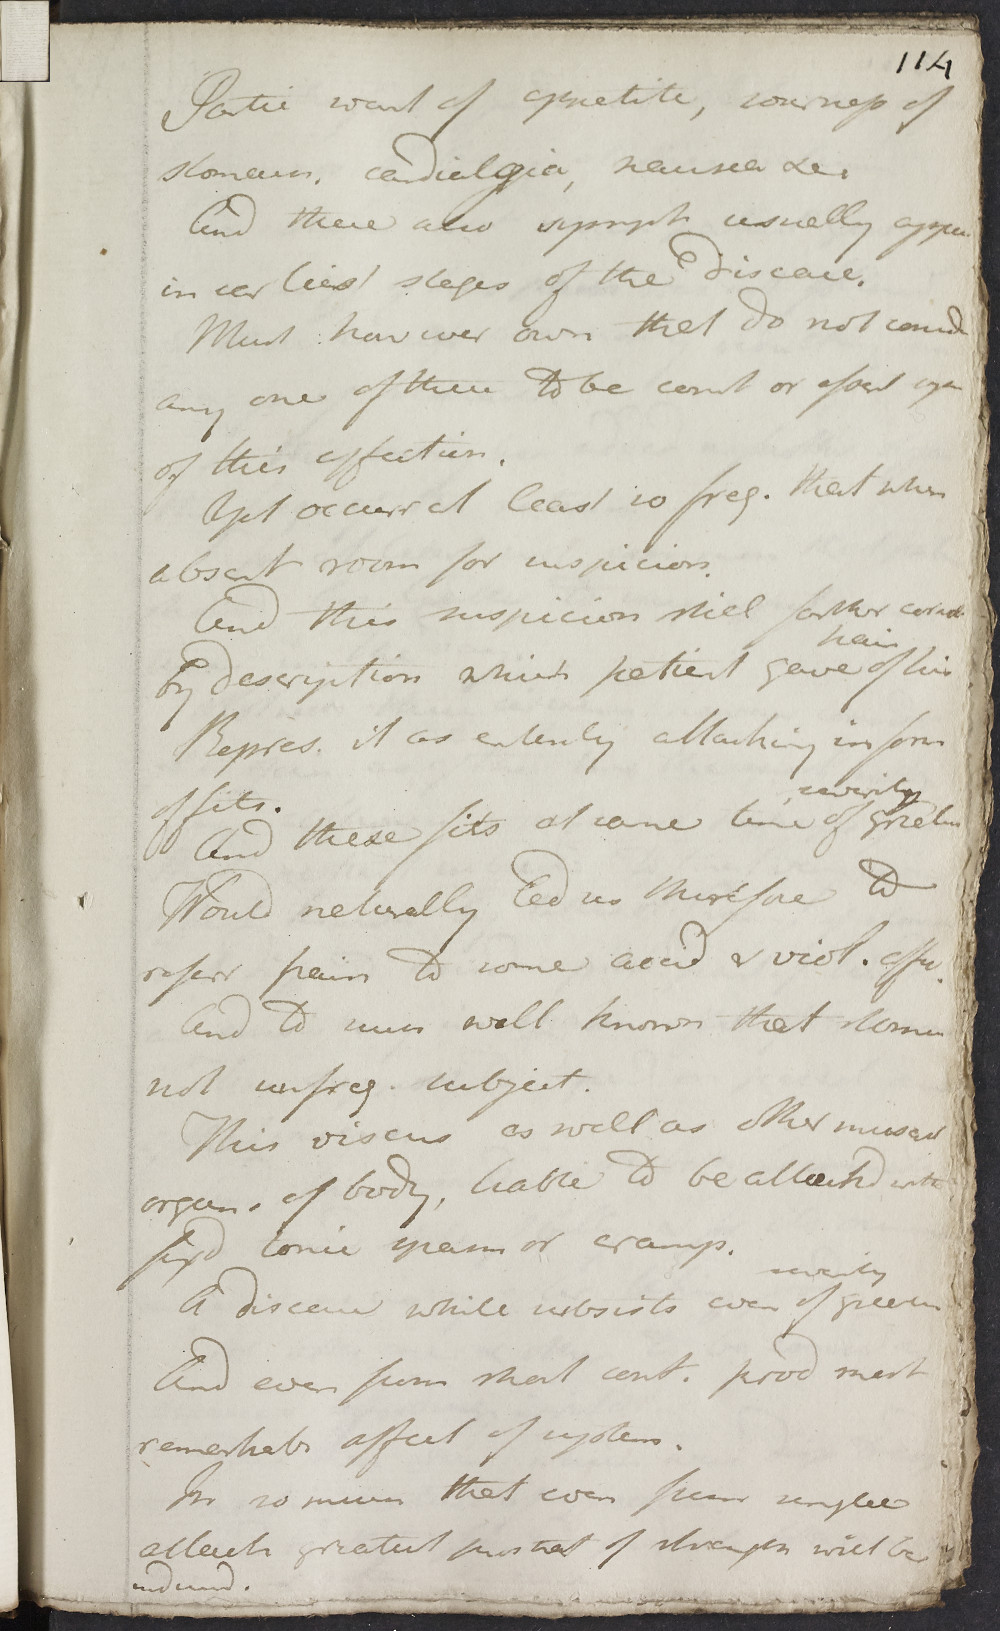 114
Partic want of appetite, sourness of
stomach. cardialgia, nausea &c.
And these also sympt usually appear
in earliest stages of the Disease.
Must however own that do not consid
any one of these to be const or essent sym
of this affection.
Yet occurr at least so freq. that when
absent room for suspicion.
And this suspicion still farther corrob
pain
by description which patient gave of his
Repres. it as entirely attacking in form
of fits.
severity
And these fits at same time of greatest
Would naturally lead us therefore to
refer pain to some accid & viol. affec.
And to such well known that stomach
not unfreq. subject.
This viscus as well as other muscul
organs of body, liable to be attack'd with
fix'd tonic spasm or cramp.
severity
A disease while subsists even of greatest
And even from short cont. prod most
remarkable affect of system.
In so much that even from single
attack greatest prostrat of strength will be
induced.